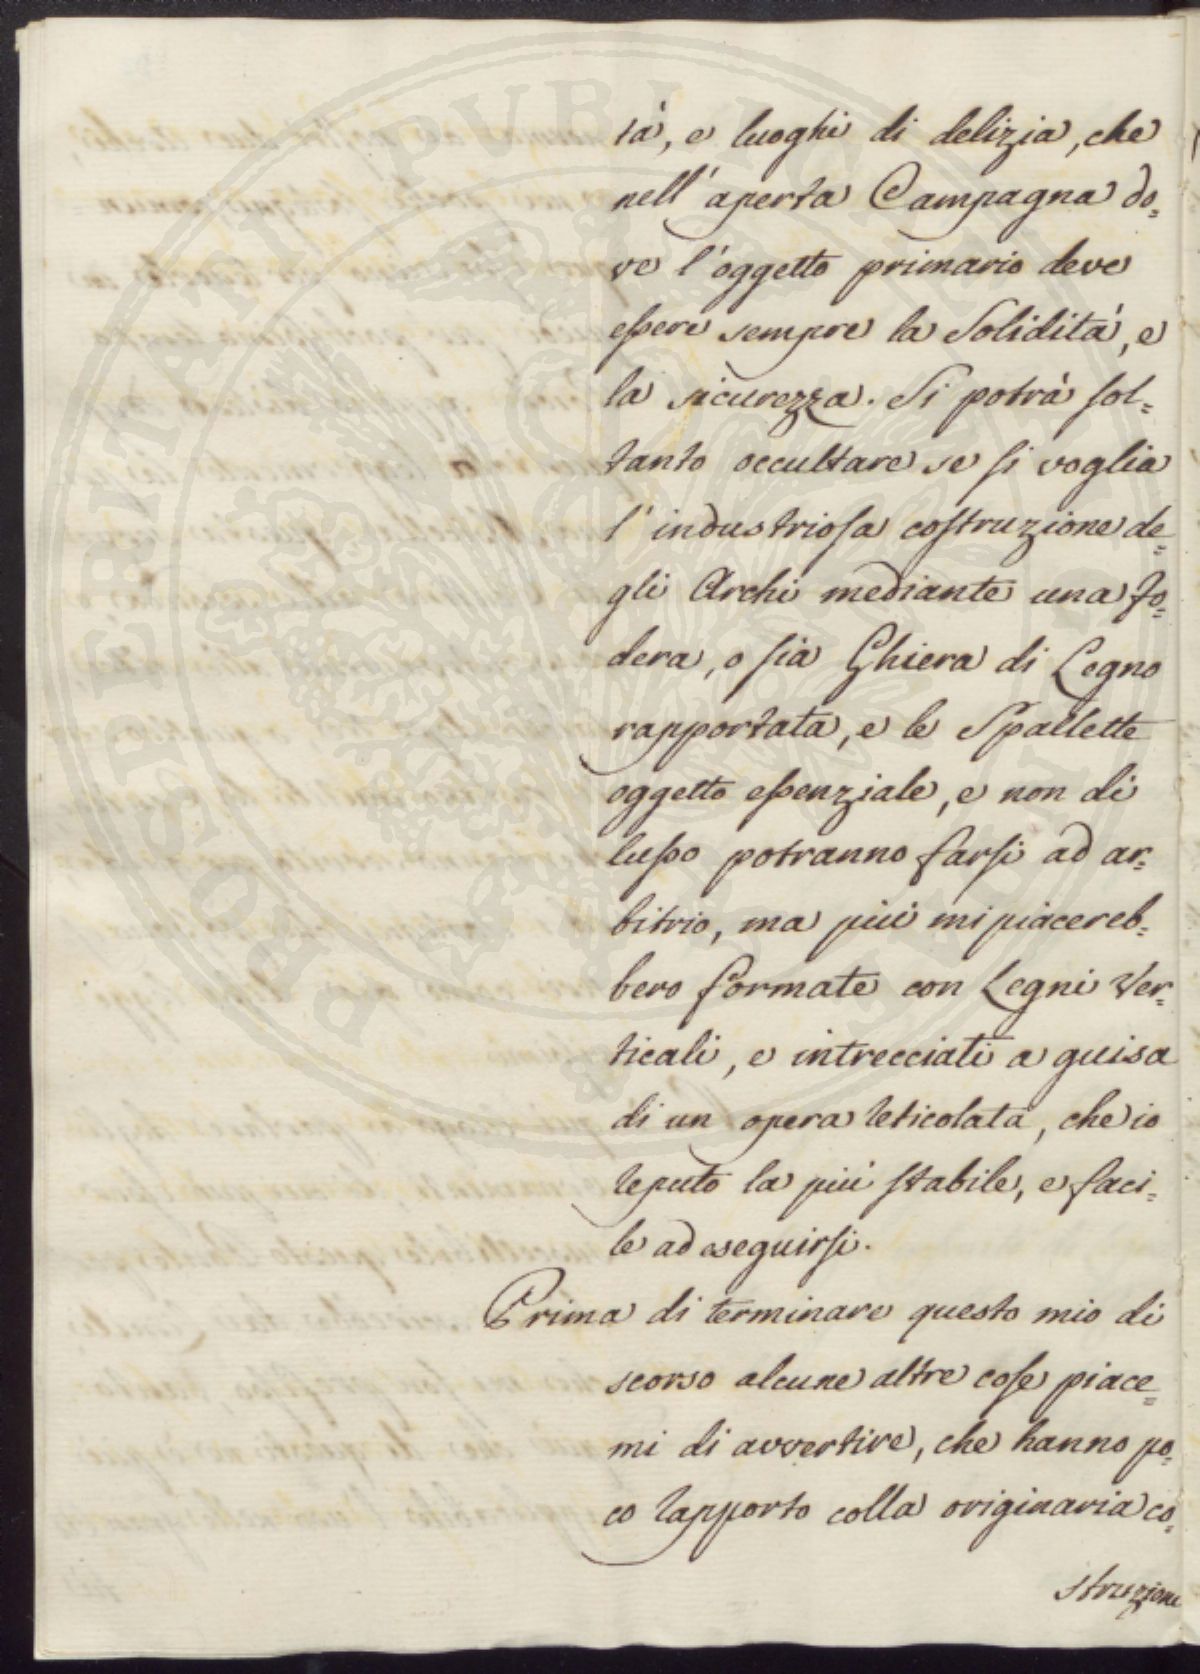 tà, e luoghi di delizia, che
nell'aperta Campagna do=
ve l'oggetto primario deve
essere sempre la Solidità, e
la sicurezza. Si potrà sol=
tanto occultare se si voglia
l'industriosa costruzione de=
gli Archi mediante una fo=
dera, o sia Ghiera di Legno
rapportata, e le Spallette
oggetto essenziale, e non di
lusso potranno farsi ad ar=
bitrio, ma più mi piacereb=
bero formate con Legni Ver=
ticali, e intrecciati a guisa
di un opera reticolata, che io
reputo la più stabile, e faci=
le ad eseguirsi.
Prima di terminare questo mio di
scorso alcune altre cose piace=
mi di avvertire, che hanno po=
co rapporto colla originaria co=
struzione